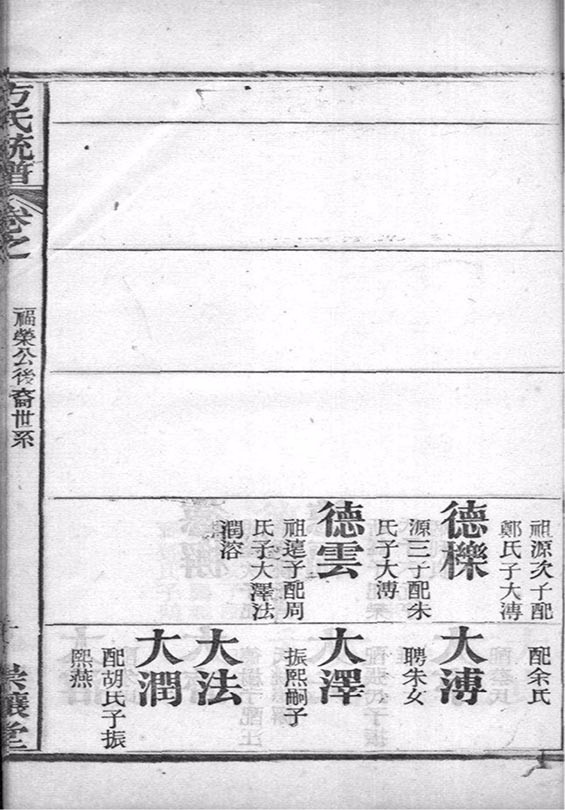 祖源次子配
鄭氏子大溥
德櫟
源三子配朱
氏子大溥
德雲
祖達子配周
氏子大澤法
潤溶
配余氏
大溥
聘朱女
大澤
振熙嗣子
大法
大潤
配胡氏子振
熙燕
方氏統譜
卷之
福榮公後裔世系
堂